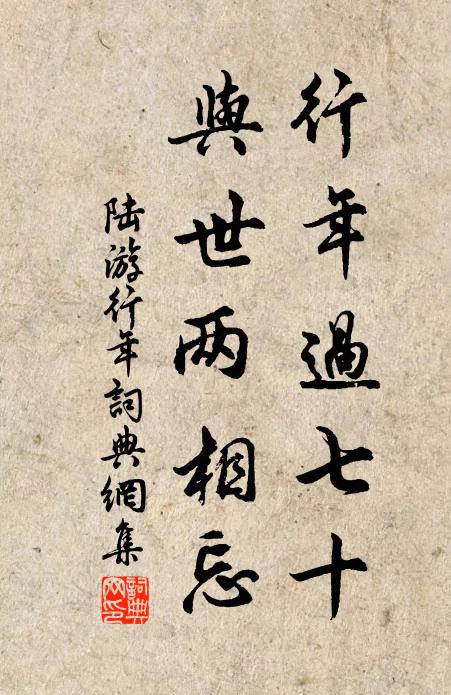 行年過七十
與世两相忘
陆游行年詞典網集
詞典
网印